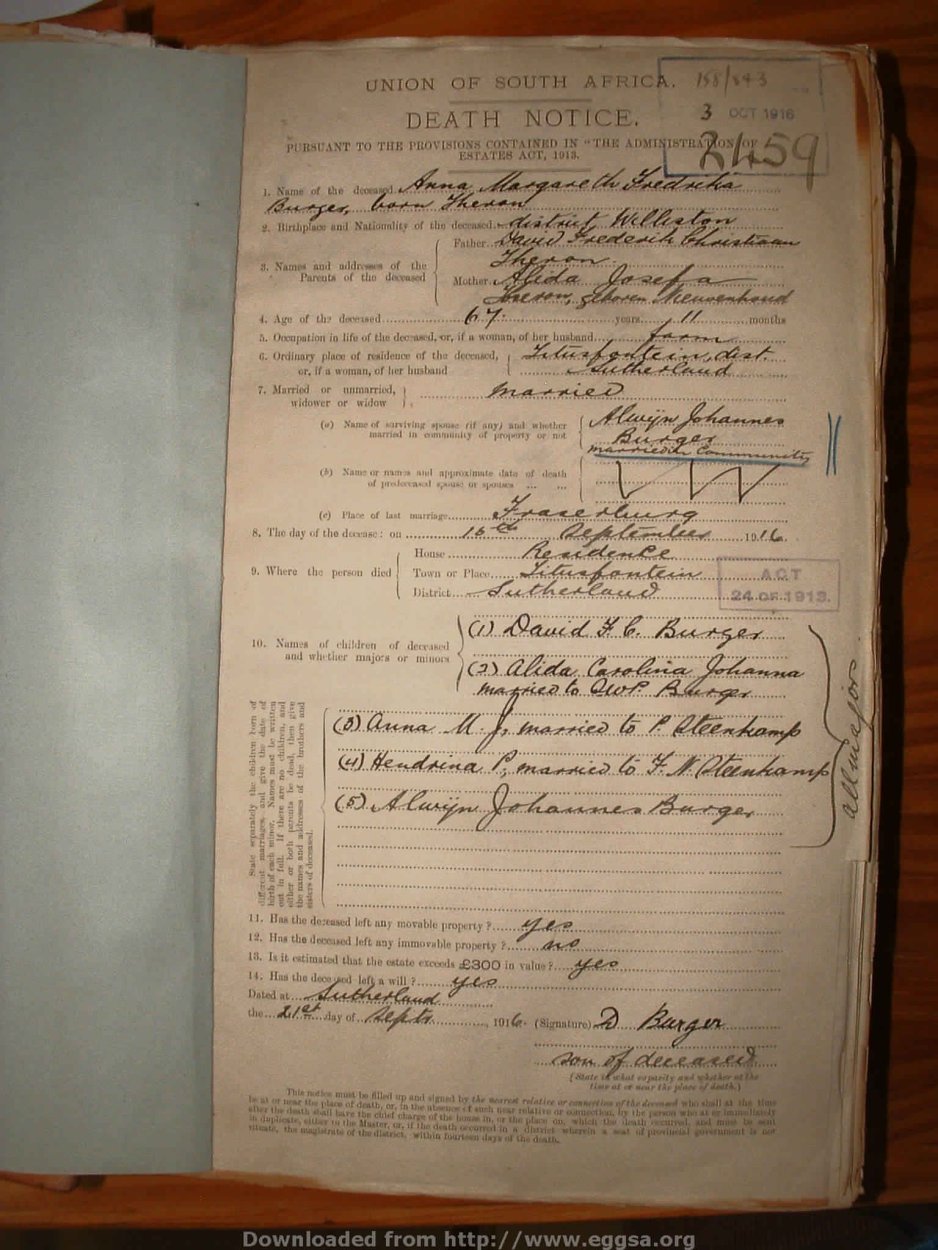 UNION OF SOUTH AFRICA. 158/843
3 OCT 1916
DEATH NOTICE.
2459
PURSUANT TO THE PROVISIONS CONTAINED IN "THE ADMINISTRATION OF
ESTATES ACT, 1913.
1. Name of the deceased Anna Margareth Fredrika
Burger, born Theron
2. Birthplace and Nationality of the deceased district Williston
3. Names and addresses of the Parents of the deceased
Father David Frederik Christiaan
Theron
Mother Alida Josefa
Theron, geboren Nieuwenhoud
4. Age of the deceased 67 years 11 months
5. Occupation in life of the deceased, or, if a woman, of her husband farm
6. Ordinary place of residence of the deceased, Titusfontein, dist.
or, if a woman, of her husband Sutherland
7. Married or unmarried, married
widower or widow
(a) Name of surviving spouse (if any) and whether married in community of property or not
Alwijn Johannes
Burger
married in Community
(b) Name or names and approximate date of death
of predeceased spouse or spouses
(c) Place of last marriage Fraserburg
8. The day of the decease: on 15th September 1916.
9. Where the person died
House Residence
Town or Place Titusfontein
District Sutherland
ACT
24 OF 1913.
10. Names of children of deceased
and whether majors or minors
(1) David F. C. Burger
(2) Alida Carolina Johanna
married to Burger
(3) Anna M. J, married to P. Steenkamp
(4) Hendrina P, married to F. N. Steenkamp
(5) Alwijn Johannes Burger
all majors
State separately the children born of
different marriages, and give the date of
birth of each minor. Names must be written
out in full. If there are no children, and
either or both parents be dead, then give
the names and addresses of the brothers and
sisters of deceased.
11. Has the deceased left any movable property ? yes
12. Has the deceased left any immovable property ? no
13. Is it estimated that the estate exceeds £300 in value ? yes
14. Has the deceased left a will ? yes
Dated at Sutherland
the 21st day of Septr, 1916. (Signature) D Burger
son of deceased
(State in what capacity and whether at the
time at or near the place of death.)
This notice must be filled up and signed by the nearest relative or connection of the deceased who shall at the time
be at or near the place of death, or, in the absence of such near relative or connection, by the person who at or immediately
after the death shall have the chief charge of the house in, or the place on, which the death occurred, and must be sent
in duplicate, either to the Master, or, if the death occurred in a district wherein a seat of provincial government is not
situate, the magistrate of the district, within fourteen days of the death.
Downloaded from http://www.eggsa.org